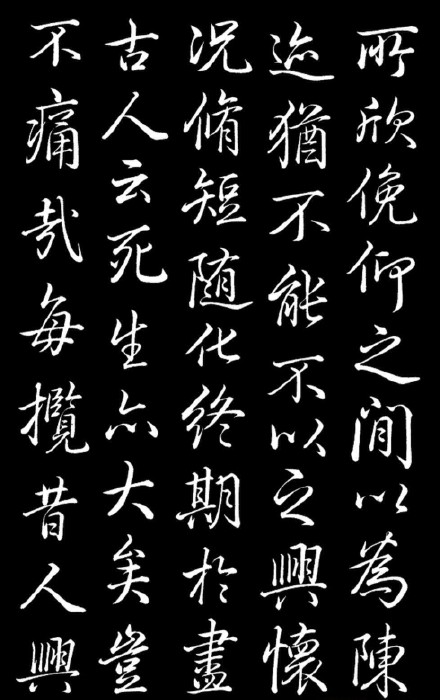 所欣俛仰之閒以為陳
迹猶不能不以之興懷
況脩短随化終期於盡
古人云死生亦大矣豈
不痛哉每攬昔人興